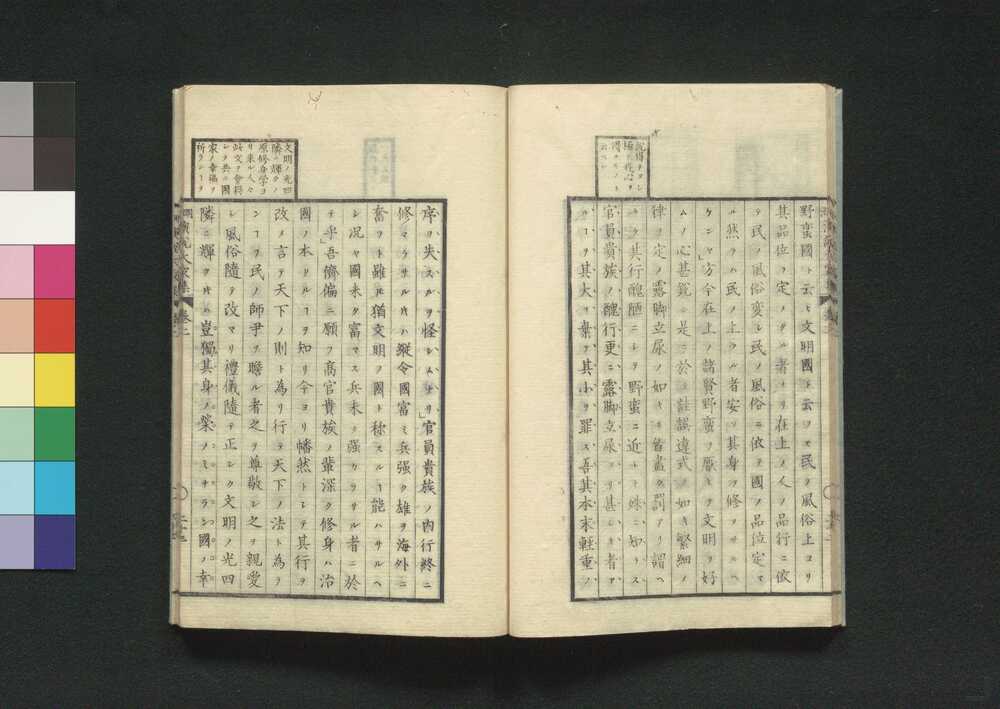 野蛮國ト云ヒ文明國ト云フモ民ノ風俗上ヨリ
其品位ヲ定メタル者ナリ在上ノ人ノ品行ニ依
テ民ノ風俗変シ民ノ風俗ニ依テ國ノ品位定マ
ル然ラハ民ノ上タル者安ソ其身ヲ修メサルヘ
ケンヤ方今在上ノ諸賢野蛮ヲ厭ヒテ文明ヲ好
ムノ心甚篤シ是ニ於テ註誤違式ノ如キ繁細ノ
律ヲ定メ露脚立尿ノ如キ皆盡ク罰アリ謂ヘ
ラク其行醜陋ニシテ野蛮ニ近シト殊ニ知ラス
官員貴族ノ醜行更ニ露脚立尿ヨリ甚シキ者ア
ルヲ其大ヲ棄テ其小ヲ罪ス吾其本末軽重ノ
文明ノ光四
隣ニ輝クノ
原修身学ヨ
リ来ル人々
此文ヲ會得
シテ共ニ國
家ノ幸福ヲ
祈ランコヲ
序ヲ失スルヲ怪シムナリ官員貴族ノ内行終ニ
修マラサルキハ縦令國富ミ兵强ク雄ヲ海外ニ
奮フト雖𪜈猶文明ヲ國ト称スルコ能ハサルヘ
シ况ヤ國未タ富マス兵未タ强カラサル者ニ於
テヲ乎吾儕偏ニ願フ髙官貴族ノ輩深ク修身ハ治
國ノ本タルコヲ知リ今ヨリ幡然トシテ其行ヲ
改メ言テ天下ノ則ト為リ行テ天下ノ法ト為ラ
ンコヲ民ノ師尹ヲ瞻ル者之ヲ尊敬シ之ヲ親愛
シ風俗隨テ改マリ禮儀隨テ正シク文明ノ光四
隣ニ輝クキハ豈獨其身ノ榮ノミナランヤ國ノ幸